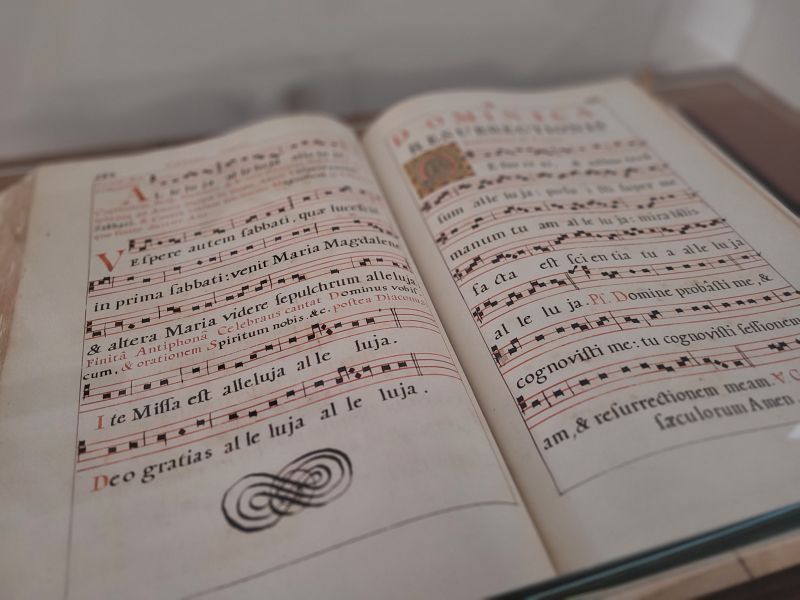 Al le lu ja, al le lu ja,
VEſpere autem ſabbati, quæ luceſcit
in prima ſabbati: venit Maria Magdalene
& altera Maria videre ſepulchrum alleluja.
Finitâ Antiphonâ Celebrans cantat Dominus vobiſ
cum, & orationem Spiritum nobis. &c. poſtea Diaconus
Ite Miſſa eſt alleluja al le luja.
Deo gratias al le luja al le luja.
DOMINICA
RESURRECTIONIS
ſum alle lu ja: poſu i ſti ſuper me
manum tu am al le lu ja: mira bilis
fa cta eſt sci en tia tu a al le lu ja
al le lu ja. Pſ. Domine probaſti me, &
cognoviſti me: tu cognoviſti ſeſſionem
am, & reſurrectionem meam. V.
ſæculorum Amen.